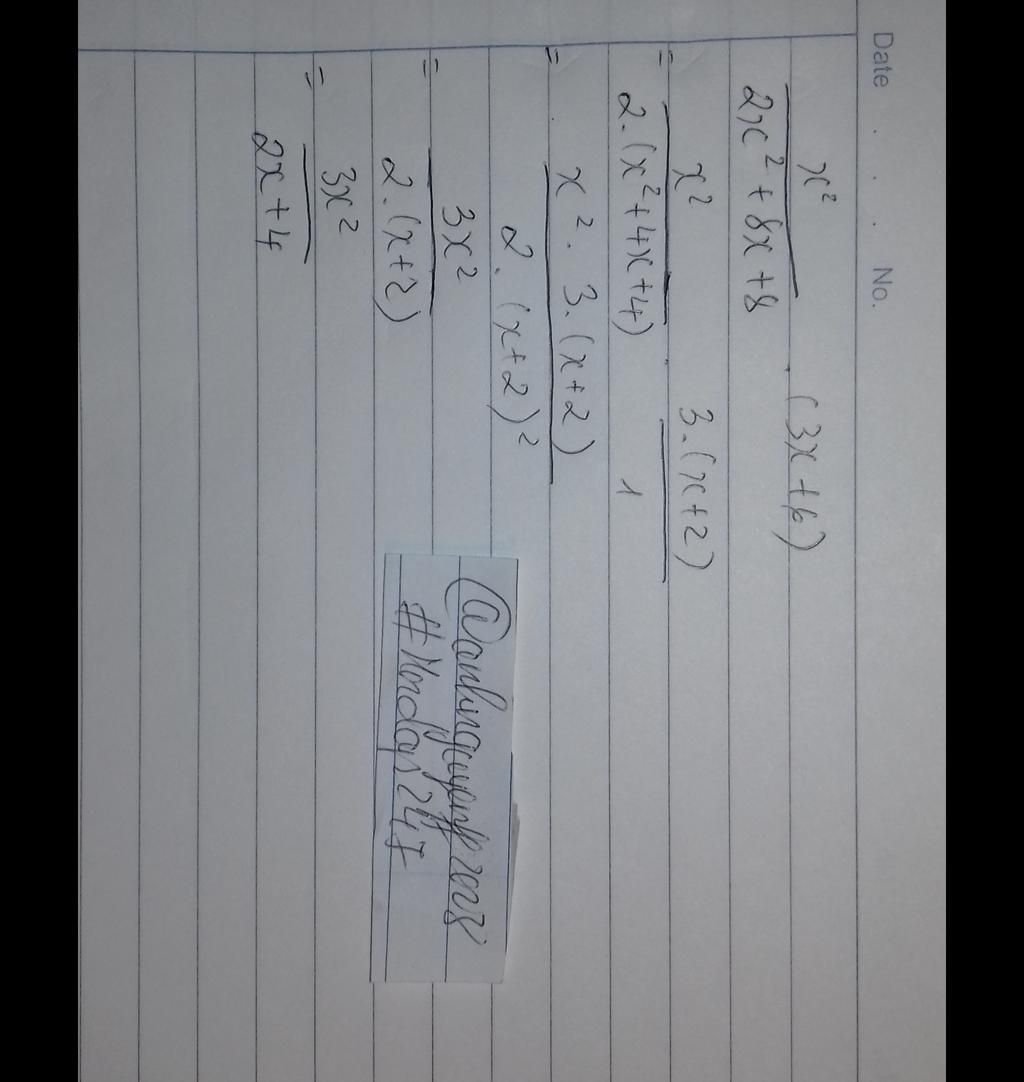 Date . . . No.
x²/(2x² + 8x + 8) . (3x + 6)
= x²/(2.(x² + 4x + 4)) . 3.(x+2)/1
= x² . 3.(x+2)/(2.(x+2)²)
= 3x²/(2.(x+2))
= 3x²/(2x+4)